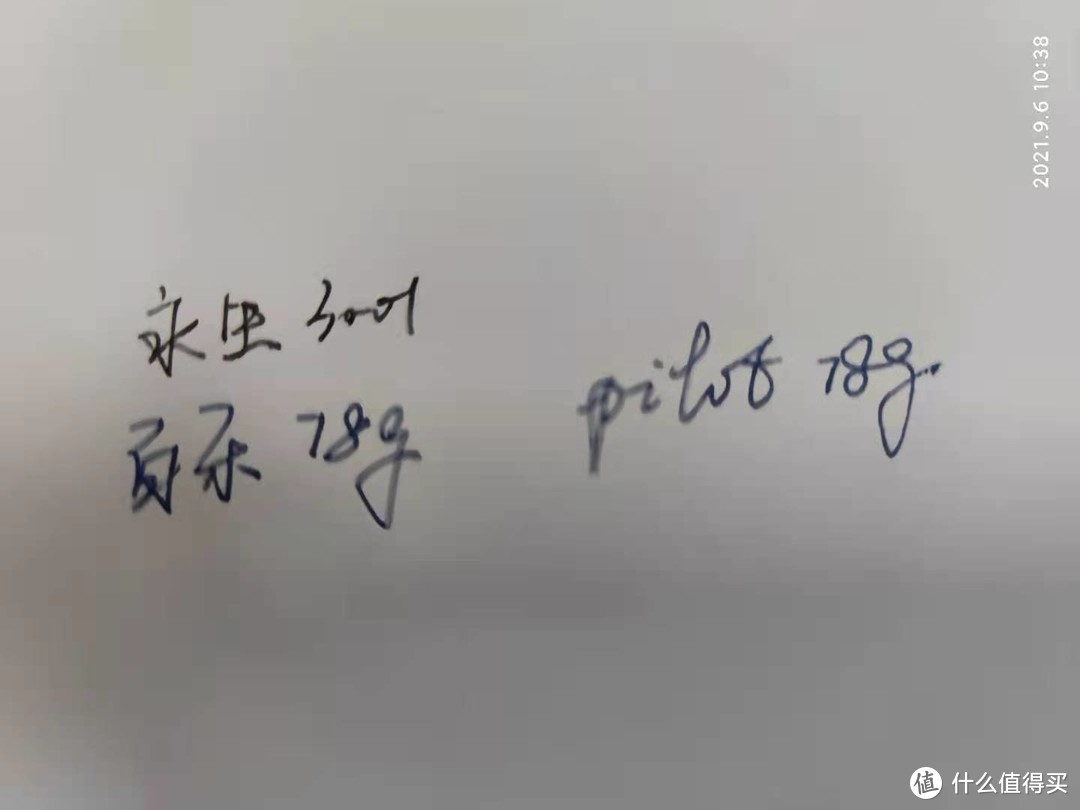 2021.9.6 10:38
永生 3001
百乐 78g
pilot 78g.
值 什么值得买